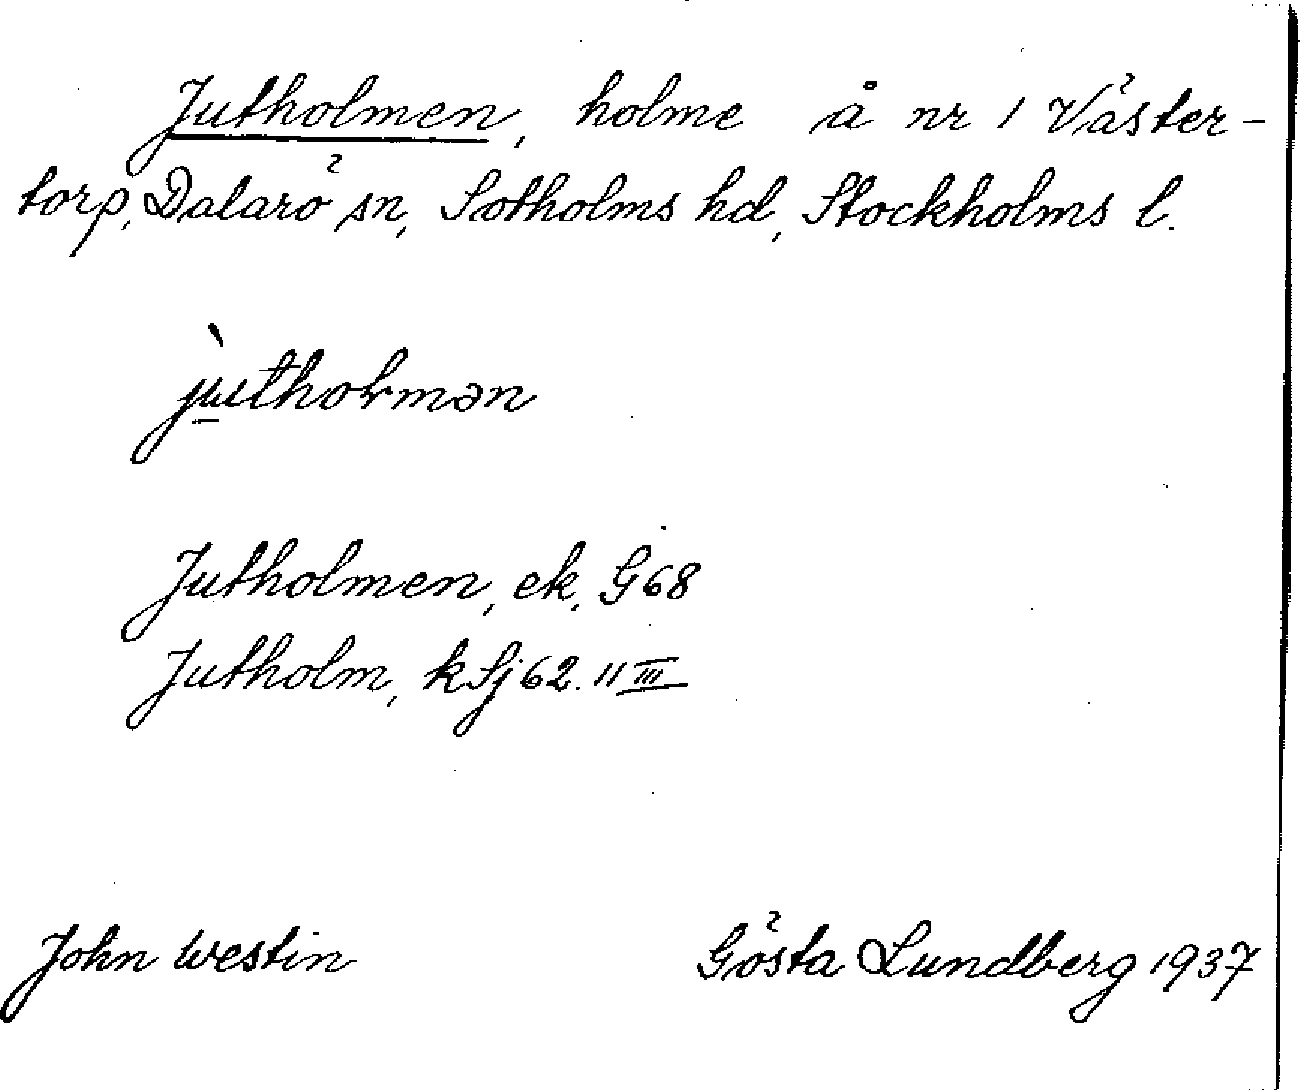 Jutholmen, holme å nr 1 Väster-
torp, Dalarö sn, Sotholms hd, Stockholms l.
Jutholmen, ek, G68
Jutholm, k Sj 62. 11 III
John Westin
Gösta Lundberg 1937